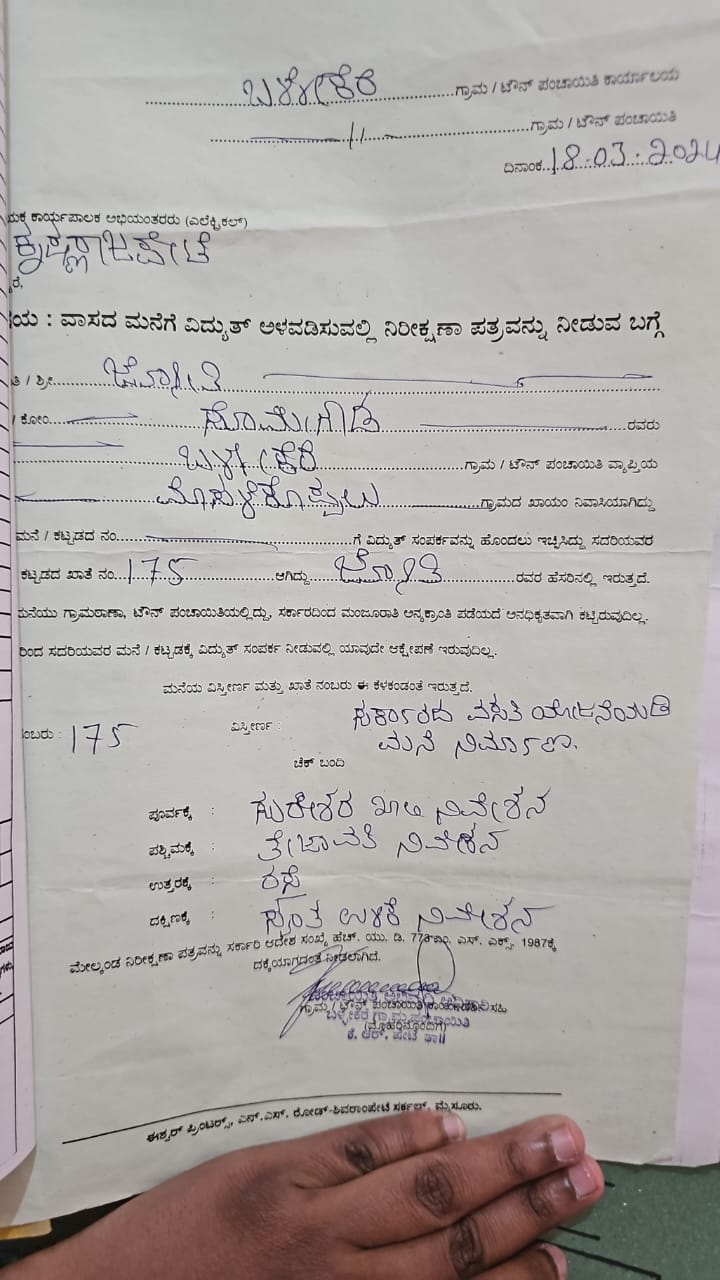 ಬಳ್ಳೇಕೆರೆ ಗ್ರಾಮ / ಟೌನ್ ಪಂಚಾಯಿತಿ ಕಾರ್ಯಾಲಯ
—〃— ಗ್ರಾಮ / ಟೌನ್ ಪಂಚಾಯಿತಿ
ದಿನಾಂಕ 18-03-2024
ಯಕ ಕಾರ್ಯಪಾಲಕ ಅಭಿಯಂತರರು (ಎಲೆಕ್ಟ್ರಿಕಲ್)
ಕೃಷ್ಣರಾಜಪೇಟೆ
ರೆ,
ಯ : ವಾಸದ ಮನೆಗೆ ವಿದ್ಯುತ್ ಅಳವಡಿಸುವಲ್ಲಿ ನಿರೀಕ್ಷಣಾ ಪತ್ರವನ್ನು ನೀಡುವ ಬಗ್ಗೆ
ತಿ / ಶ್ರೀ ಜ್ಯೋತಿ
/ ಕೋಂ ಸೋಮೇಗೌಡ ರವರು
ಬಳ್ಳೇಕೆರೆ ಗ್ರಾಮ / ಟೌನ್ ಪಂಚಾಯಿತಿ ವ್ಯಾಪ್ತಿಯ
ಮೊಸಳೆಕೊಪ್ಪಲು ಗ್ರಾಮದ ಖಾಯಂ ನಿವಾಸಿಯಾಗಿದ್ದು
ಮನೆ / ಕಟ್ಟಡದ ನಂ. ಗೆ ವಿದ್ಯುತ್ ಸಂಪರ್ಕವನ್ನು ಹೊಂದಲು ಇಚ್ಛಿಸಿದ್ದು ಸದರಿಯವರ
ಕಟ್ಟಡದ ಖಾತೆ ನಂ. 175 ಆಗಿದ್ದು ಜ್ಯೋತಿ ರವರ ಹೆಸರಿನಲ್ಲಿ ಇರುತ್ತದೆ.
ಮನೆಯು ಗ್ರಾಮಠಾಣಾ, ಟೌನ್ ಪಂಚಾಯಿತಿಯಲ್ಲಿದ್ದು, ಸರ್ಕಾರದಿಂದ ಮಂಜೂರಾತಿ ಅನ್ಯಕ್ರಾಂತಿ ಪಡೆಯದೆ ಅನಧಿಕೃತವಾಗಿ ಕಟ್ಟಿರುವುದಿಲ್ಲ.
ರಿಂದ ಸದರಿಯವರ ಮನೆ / ಕಟ್ಟಡಕ್ಕೆ ವಿದ್ಯುತ್ ಸಂಪರ್ಕ ನೀಡುವಲ್ಲಿ ಯಾವುದೇ ಆಕ್ಷೇಪಣೆ ಇರುವುದಿಲ್ಲ.
ಮನೆಯ ವಿಸ್ತೀರ್ಣ ಮತ್ತು ಖಾತೆ ನಂಬರು ಈ ಕೆಳಕಂಡಂತೆ ಇರುತ್ತದೆ.
ಂಬರು : 175 ವಿಸ್ತೀರ್ಣ : ಸರ್ಕಾರದ ವಸತಿ ಯೋಜನೆಯಡಿ
ಮನೆ ನಿರ್ಮಾಣ.
ಚೆಕ್ ಬಂದಿ
ಪೂರ್ವಕ್ಕೆ : ಸುರೇಶರ ಖಾಲಿ ನಿವೇಶನ
ಪಶ್ಚಿಮಕ್ಕೆ : ತೇಜಾವತಿ ನಿವೇಶನ
ಉತ್ತರಕ್ಕೆ : ರಸ್ತೆ
ದಕ್ಷಿಣಕ್ಕೆ : ಸ್ವಂತ ಉಳಿಕೆ ನಿವೇಶನ
ಮೇಲ್ಕಂಡ ನಿರೀಕ್ಷಣಾ ಪತ್ರವನ್ನು ಸರ್ಕಾರಿ ಆದೇಶ ಸಂಖ್ಯೆ ಹೆಚ್. ಯು. ಡಿ. 773 ಎಂ. ಎಸ್. ಎಕ್ಸ್. 1987ಕ್ಕೆ
ದಕ್ಕೆಯಾಗದಂತೆ ನೀಡಲಾಗಿದೆ.
ಪಂಚಾಯಿತಿ ಅಭಿವೃದ್ಧಿ ಅಧಿಕಾರಿ
ಗ್ರಾಮ / ಟೌನ್ ಪಂಚಾಯಿತಿ ಸಹಿ
ಬಳ್ಳೇಕೆರೆ ಗ್ರಾಮ ಪಂಚಾಯಿತಿ
(ಮೊಹರಿನೊಂದಿಗೆ)
ಕೆ. ಆರ್. ಪೇಟೆ ತಾ||
ಈಶ್ವರ್ ಪ್ರಿಂಟರ್ಸ್, ಎನ್.ಎಸ್. ರೋಡ್-ಶಿವರಾಂಪೇಟೆ ಸರ್ಕಲ್, ಮೈಸೂರು.